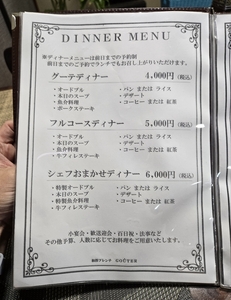 DINNER MENU
※ディナーメニューは前日までの予約制
前日までのご予約でランチでもお召し上がりいただけます。
グーテディナー 4,000円(税込)
・オードブル ・パン または ライス
・本日のスープ ・デザート
・魚介料理 ・コーヒー または 紅茶
・ポークステーキ
フルコースディナー 5,000円(税込)
・オードブル ・パン または ライス
・本日のスープ ・デザート
・魚介料理 ・コーヒー または 紅茶
・牛フィレステーキ
シェフおまかせディナー 6,000円(税込)
・特製オードブル ・パン または ライス
・本日のスープ ・デザート
・特製魚介料理 ・コーヒー または 紅茶
・牛フィレステーキ
小宴会・歓送迎会・百日祝・法事など
その他予算、人数に応じてお料理をご用意いたします。
GOÛTER